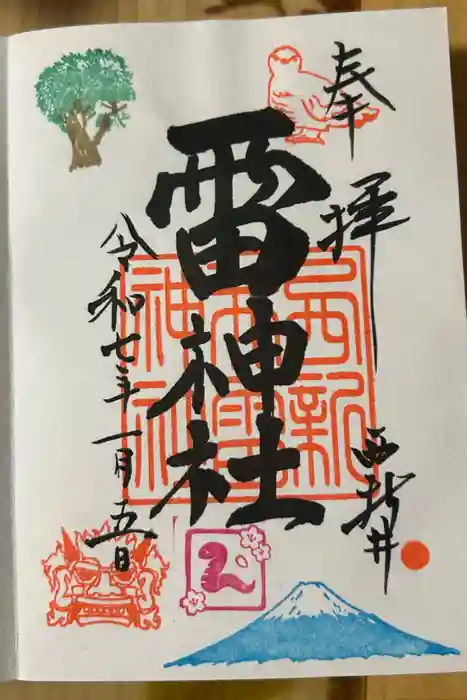 奉拝
西新井
雷神社
令和七年一月五日
西新
神社